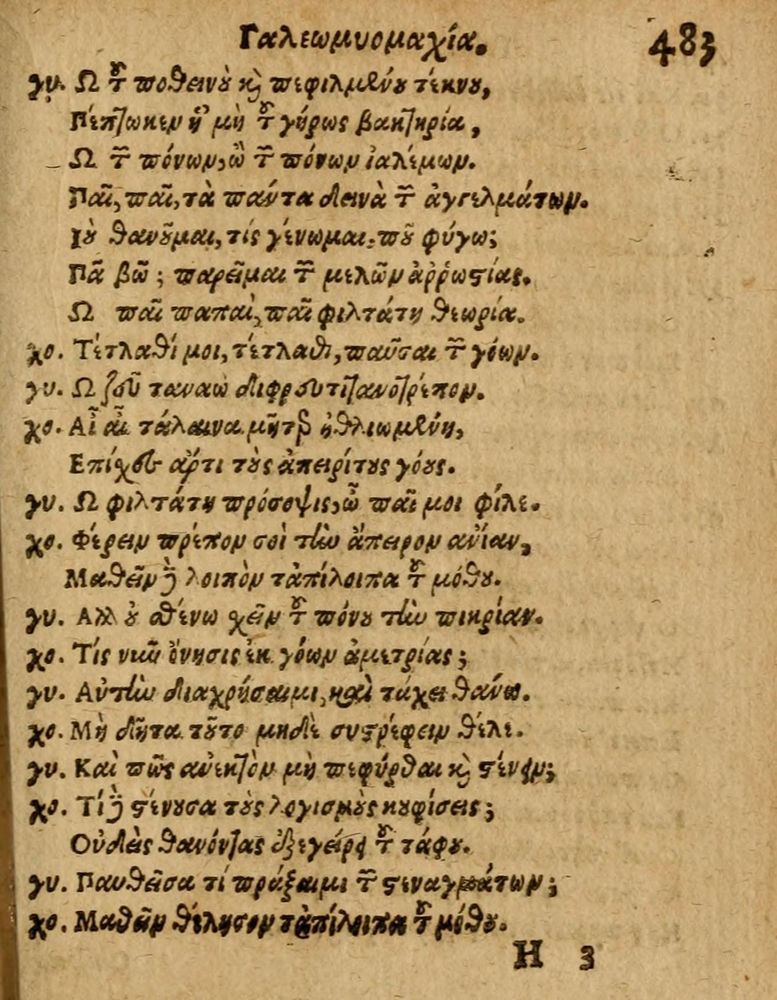 Γαλεωμυομαχία. 483
γυ. Ω τοῦ ποθεινοῦ καὶ πεφιλμένου τέκνου,
Πέπτωκεν ἡ μὴ τοῦ γήρως βακτηρία,
Ω τῶν πόνων, ὢ τῶν πόνων ἰαλέμων.
Παῖ, παῖ, τὰ πάντα δεινὰ τῶν ἀγγελμάτων.
Ιοὺ θανοῦμαι, τίς γένωμαι, ποῦ φύγω;
Πᾶ βῶ; παρεῖμαι τῶν μελῶν ἀῤῥωστίας.
Ω παῖ παπαὶ, παῖ φιλτάτη θεωρία.
χο. Τέτλαθί μοι, τέτλαθι, παῦσαι τῶν γόων.
γυ. Ω ζεῦ ταναῶ
χο. Αἶ αἶ τάλαινα μῆτερ ἠθλιωμένη,
Επίχες ἄρτι τοὺς ἀπειρίτους γόους.
γυ. Ω φιλτάτη πρόσοψις, ὦ παῖ μοι φίλε.
χο. Φέρειν πρέπον σοὶ τὴν ἄπειρον ἀνίαν,
Μαθεῖν δὲ λοιπὸν τἀπίλοιπα τοῦ μόθου.
γυ. Αλλ' οὐ σθένω χεῖν τοῦ πόνου τὴν πικρίαν.
χο. Τίς νῦν ὄνησις ἐκ γόων ἀμετρίας;
γυ. Αὐτὴν διαχρήσαιμι, καὶ τάχει θάνω.
χο. Μὴ δῆτα τοῦτο μηδὲ συστρέφειν θέλε.
γυ. Καὶ πῶς ἀνεκτὸν μὴ πεφύρθαι καὶ στένειν;
χο. Τί δὲ στένουσα τοὺς λογισμοὺς κουφίσεις;
Οὐδεὶς θανόντας ἐξεγείρει τοῦ τάφου.
γυ. Παυθεῖσα τί πράξαιμι τῶν στεναγμάτων;
χο. Μαθεῖν θέλησον τἀπίλοιπα τοῦ μόθου.
H 3